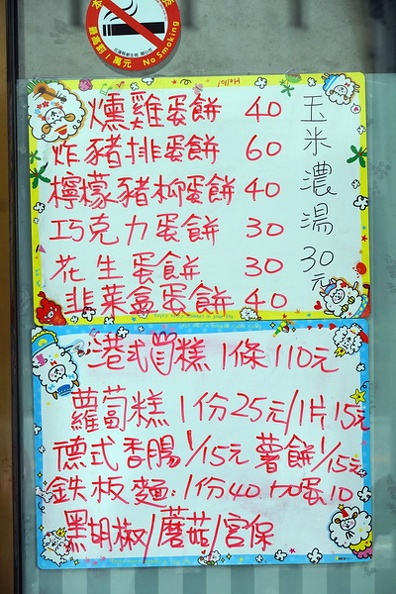 最高罰1萬元 No Smoking
Hello!
燻雞蛋餅 40
炸豬排蛋餅 60
檸檬豬柳蛋餅 40
巧克力蛋餅 30
花生蛋餅 30
韭菜盒蛋餅 40
玉米濃湯 30元
港式蔔糕 1條 110元
蘿蔔糕 1份25元/1片15元
德式香腸 1/15元 薯餅 1/15元
鉄板麵:1份40加蛋10
黑胡椒/蘑菇/宮保